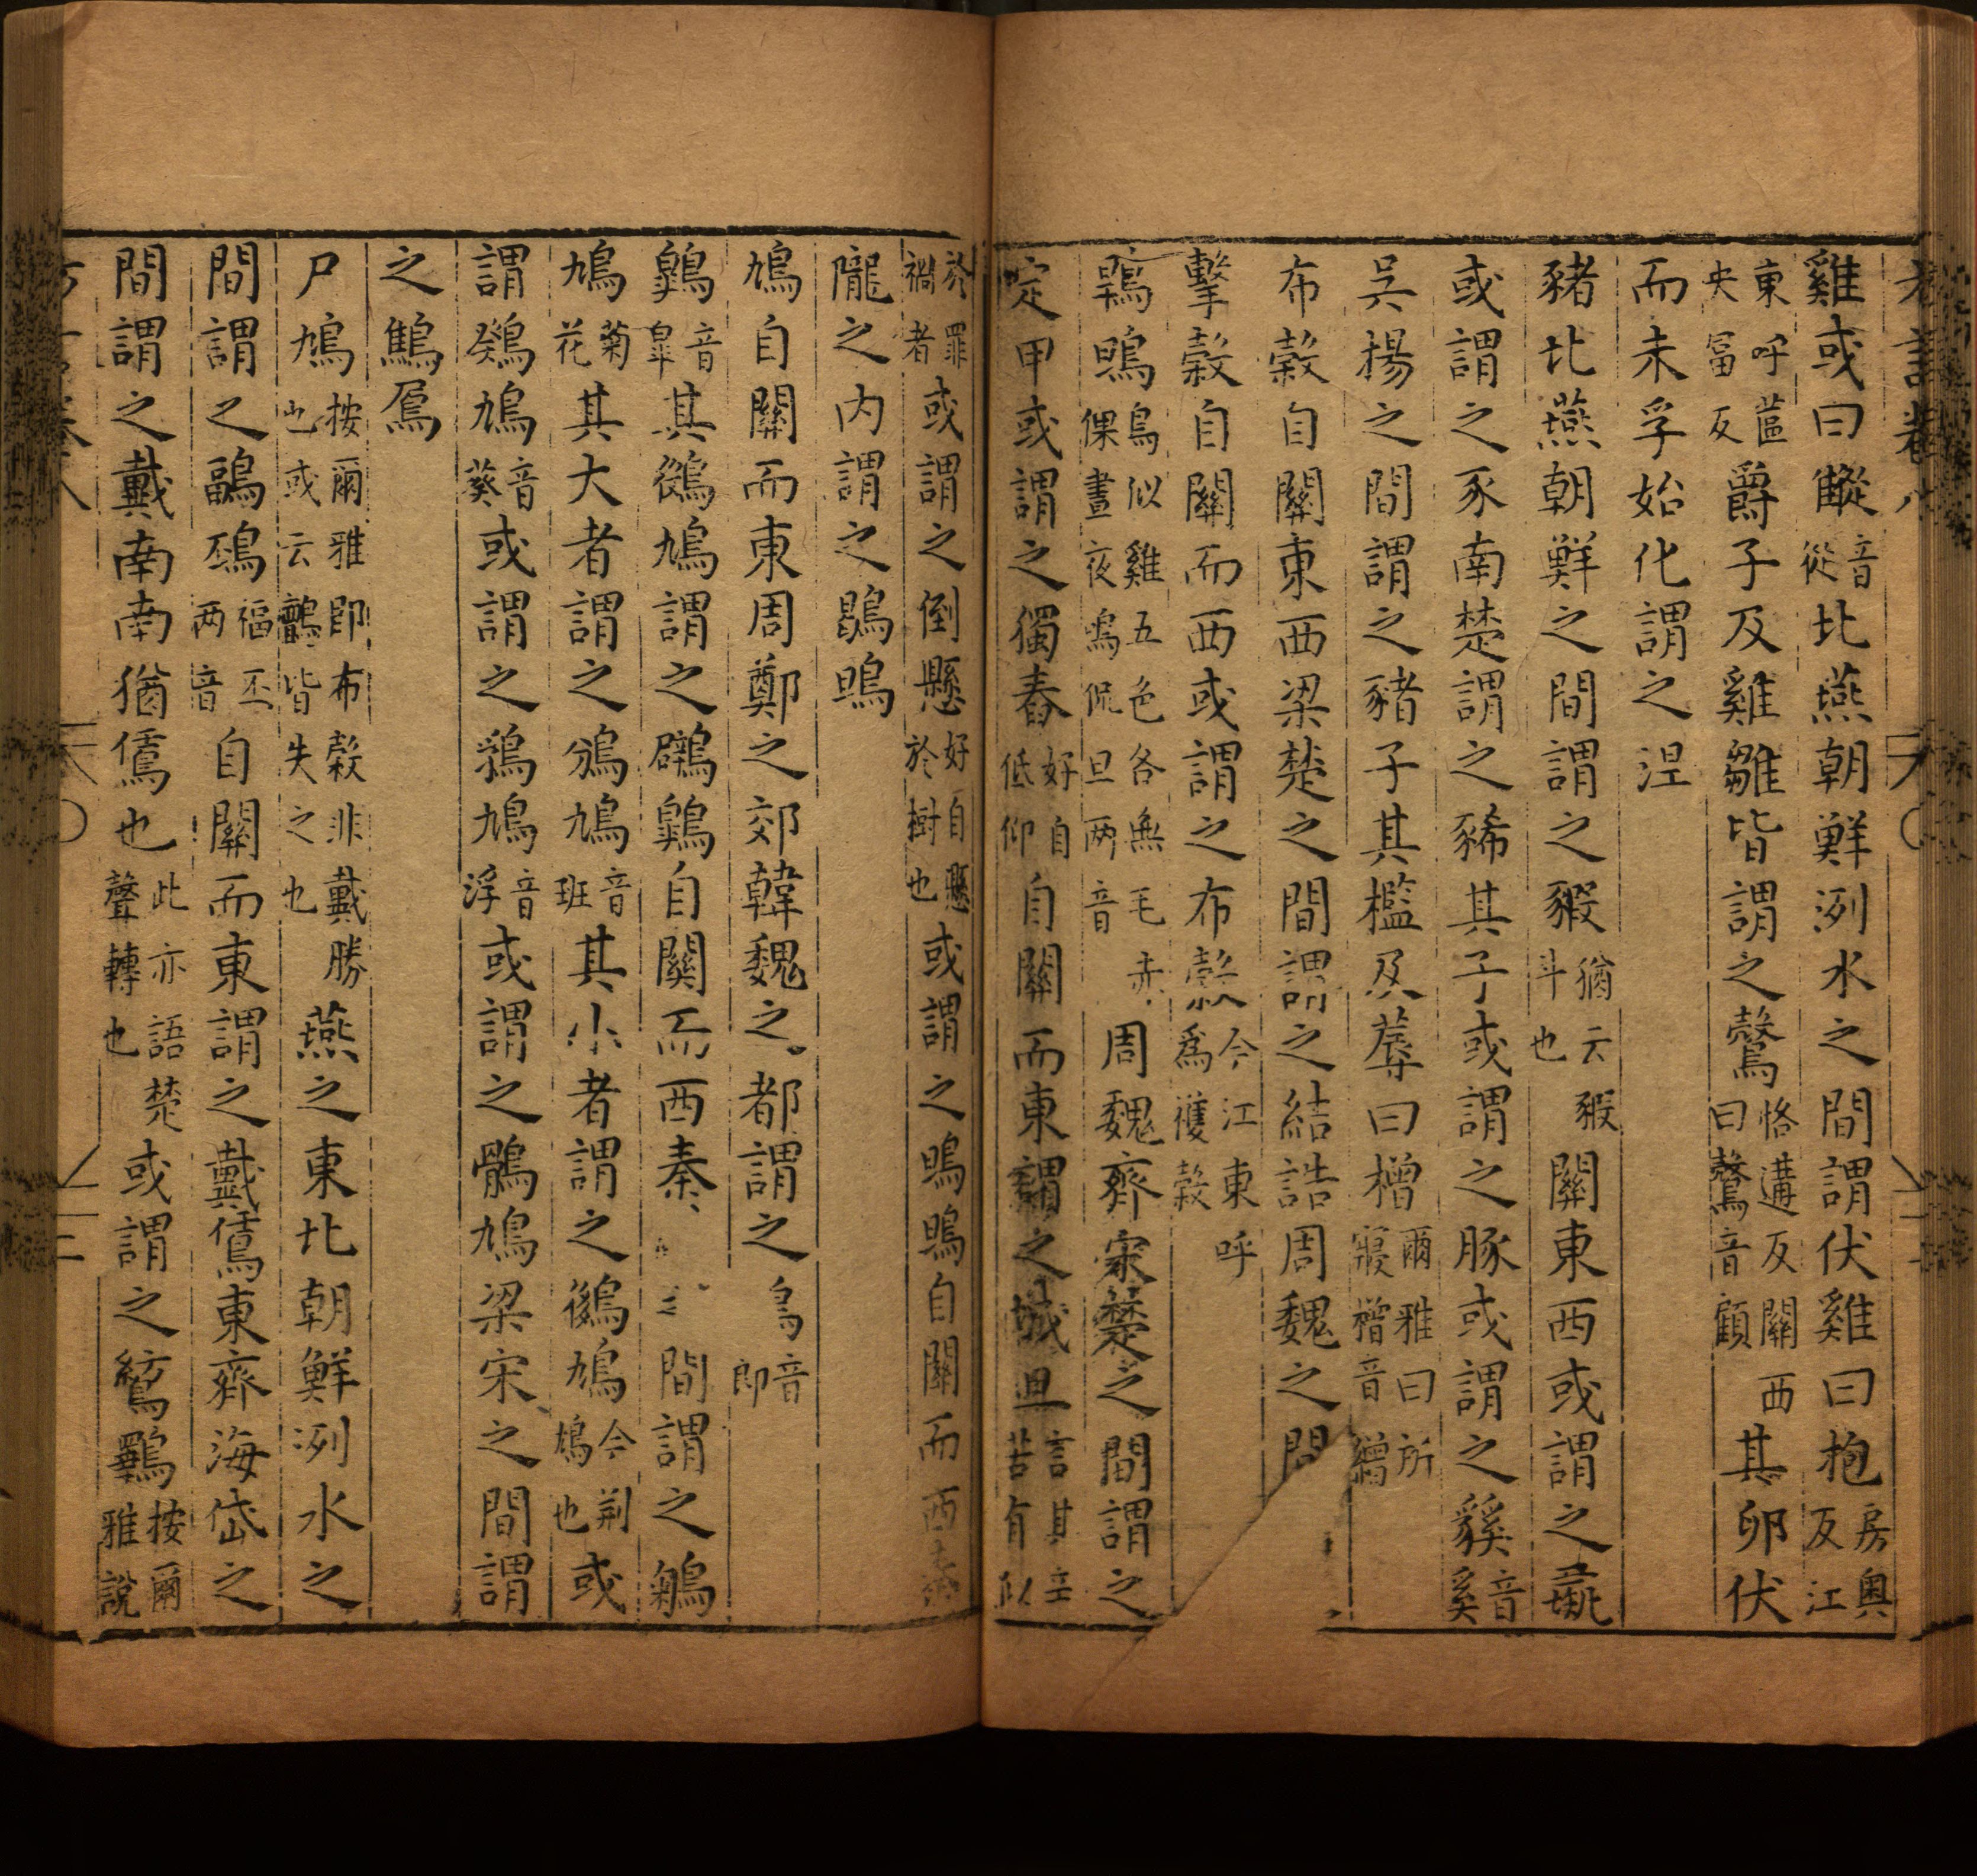 雞或曰𪃈音從北燕朝鮮洌水之間謂伏雞曰抱房奧反江
東呼蓲央富反爵子及雞雛皆謂之鷇恪遘反關西曰鷇音顧其卵伏
而未孚始化謂之涅
豬北燕朝鮮之間謂之豭猶云豭斗也關東西或謂之彘
或謂之豕南楚謂之豨其子或謂之豚或謂之貕音奚
吳揚之間謂之豬子其檻及蓐曰橧爾雅曰所寢橧音繒
布穀自關東西梁楚之間謂之結誥周魏之間
擊穀自關而西或謂之布穀今江東呼為穫穀
鶡鴠鳥似雞五色冬無毛赤倮晝夜鳴侃旦两音周魏齊宋楚之間謂之
定甲或謂之獨舂好自低仰自關而東謂之城旦言其辛苦有似
於罪禍者或謂之倒懸好自懸於樹也或謂之鴠鴠自關而西秦
隴之內謂之鶡鴠
鳩自關而東周鄭之郊韓魏之都謂之音郎
鷱音皐其鵕鳩謂之鸊鷱自關而西秦間謂之鵴
鳩菊花其大者謂之鳻鳩音班其小者謂之鵕鳩今荆鳩也或
謂鶏鳩音葵或謂之鵓鳩音浮或謂之鶻鳩梁宋之間謂
之鷦
尸鳩按爾雅即布穀非戴勝也或云鸇皆失之也燕之東北朝鮮洌水之
間謂之鶝𪀼福丕两音自關而東謂之戴鵀東齊海岱之
間謂之戴南南猶鵀也此亦語楚聲轉也或謂之鶭鸅按爾雅說